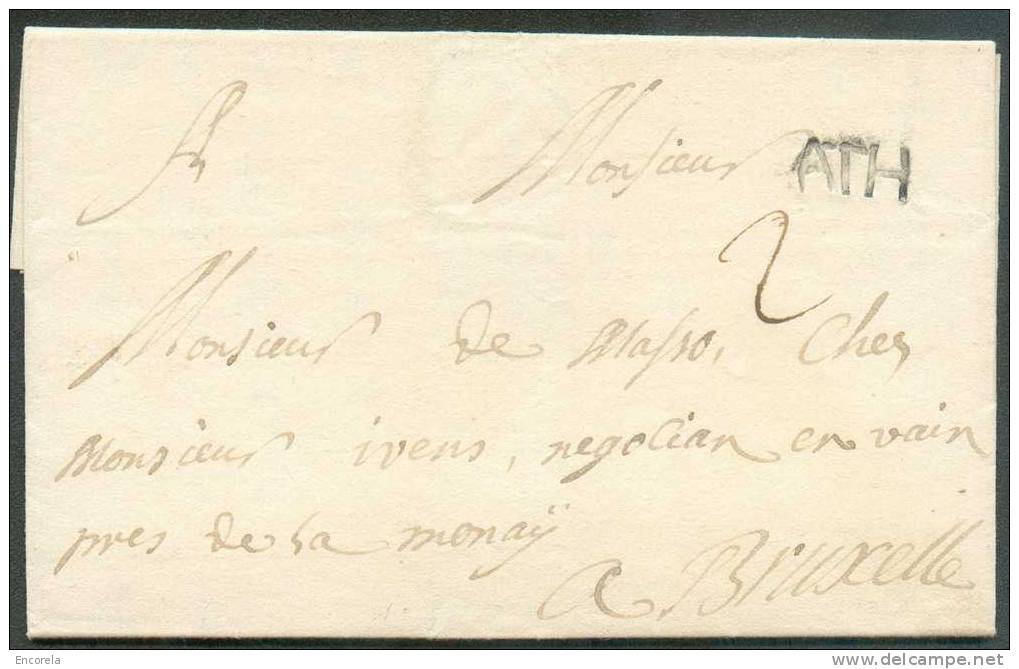 A Monsieur
ATH
2
Monsieur de Masso, Chez
Monsieur ivens, negotian en vain
pres de la monaÿ
a Bruxelle
Encorela
www.delcampe.net